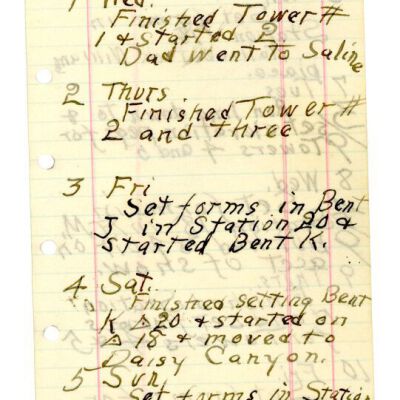 1 Wed.
Finished Tower #
1 & Started 2
Dad went to Saline
2 Thurs.
Finished Tower #
2 and three
3 Fri
Set forms in Bent
J in Station 20 &
Started Bent K.
4 Sat.
Finished setting Bent
K △ 20 & started on
△ 18 & moved to
Daisy Canyon.
5 Sun
Set forms in Station